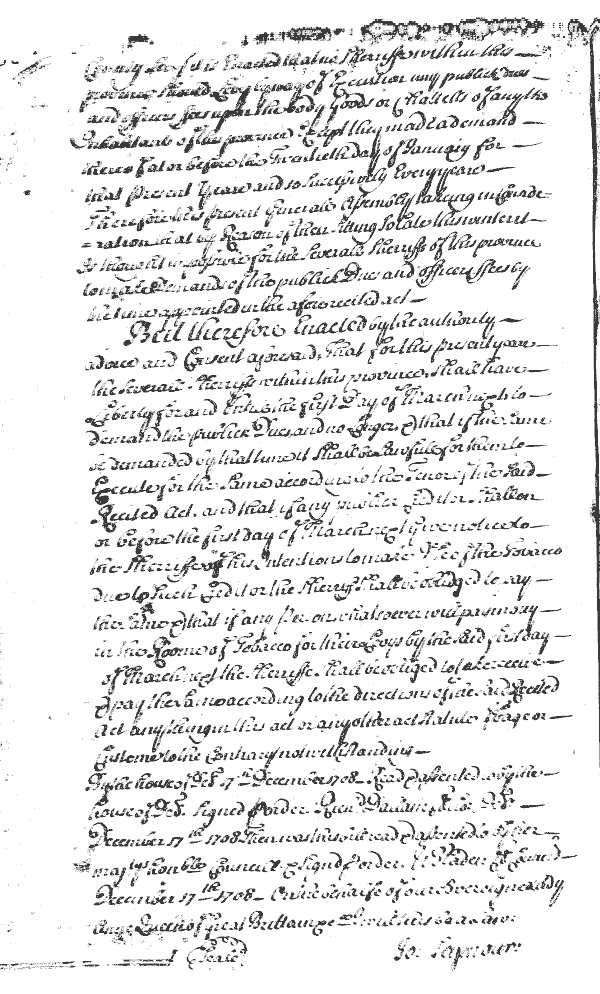 County Levy it is Enacted that noe Sherriffe within this
province should Levy by way of Execution any publick dues
and officers fees upon the body Goods or Chattells of any the
Inhabitants of this province Except they made a demand
thereof at or before the Twentieth day of January for
that present Yeare and so successively Every yeare
Therefore this present Generall Assembly takeing in Conside=
=ration that by Reason of their Sitting so Late this winter it
Is thought impossible for the Severall Sherriffs of this province
to make Demands of the publick Dues and officers ffees by
the time appointed in the afore recited act
Be it therefore Enacted by the authority
advice and Consent aforesaid, That for this present yeare
the severall Sherriffs within this province, shall have
Liberty for and Untill the first Day of March next to
demand the publick Dues, and no longer, & that if the same
be demanded by that time it shall be Lawfull for them to
Execute for the same according to the Tenor of the said
Recited Act, and that if any publick Creditor shall on
or before the first day of March next give notice to
the Sherriffe of his Intentions to make Use of the Tobacco
due to such Creditor the Sherriff shall be obliged to pay
the same & that if any person whatsoever will pay mony
in the Roome of Tobacco for their Levys by the said first day
of March next the Sherriffe shall be obliged to take receive
& pay the same according to the directions of the said Recited
Act any thing in this act or any other act Statute Usage or
Custome to the Contrary notwithstanding
By the house of Del. 17th December 1708 Read & assented to by the
house of Del. Signed p order
December 17th 1708 Then was this bill read & assented to by her
majtys honble Councill & Signd p order. W Bladen Cl Councl
December 17th 1708 On the behalfe of our Sovereigne Lady
Anne Queen of Great Brittain &c I will this be a Law.
Sealed Jo: Seymour